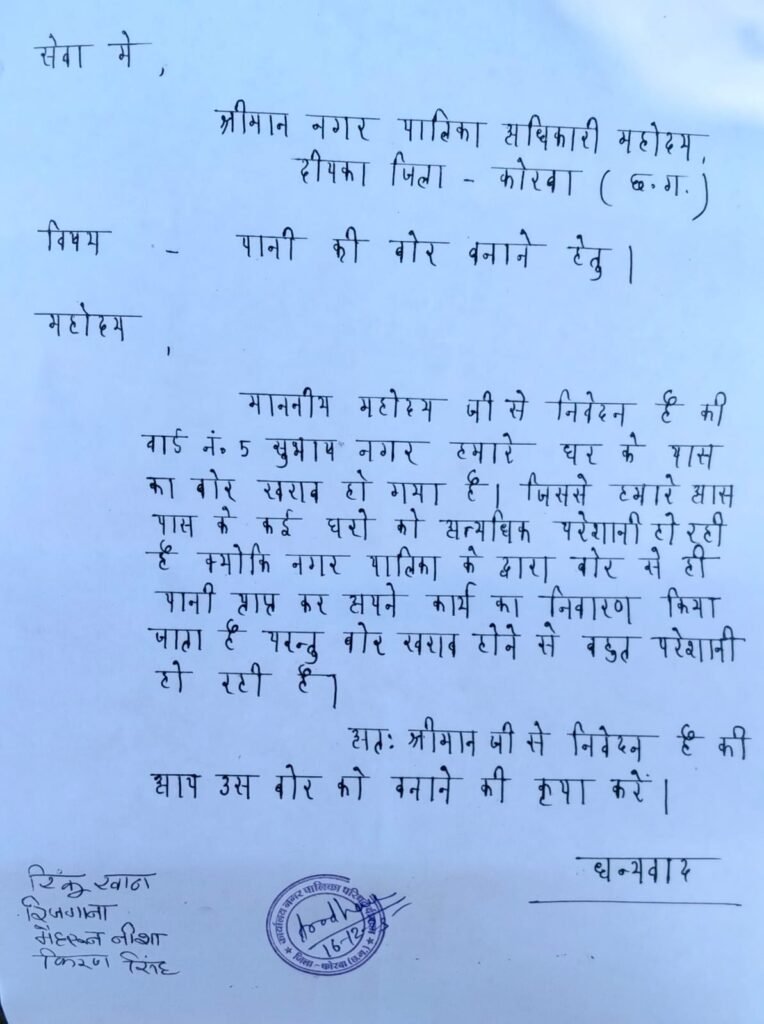 सेवा मे,
श्रीमान नगर पालिका अधिकारी महोदय,
दीपका जिला - कोरबा ( छ.ग. )
विषय - पानी की बोर बनाने हेतु।
महोदय,
माननीय महोदय जी से निवेदन है की
वार्ड नं. 5 सुभाष नगर हमारे घर के पास
का बोर खराब हो गया है। जिससे हमारे आस
पास के कई घरो को अत्यधिक परेशानी हो रही
है क्योकि नगर पालिका के द्वारा बोर से ही
पानी प्राप्त कर अपने कार्य का निवारण किया
जाता है परन्तु बोर खराब होने से बहुत परेशानी
हो रही है।
अतः श्रीमान जी से निवेदन है की
आप उस बोर को बनाने की कृपा करें।
धन्यवाद
रिंकू खान
रिजगाना
मेहरून नीशा
किरण सिंह
कार्यालय नगर पालिका परिषद
16-12
जिला - कोरबा (छ.ग.)